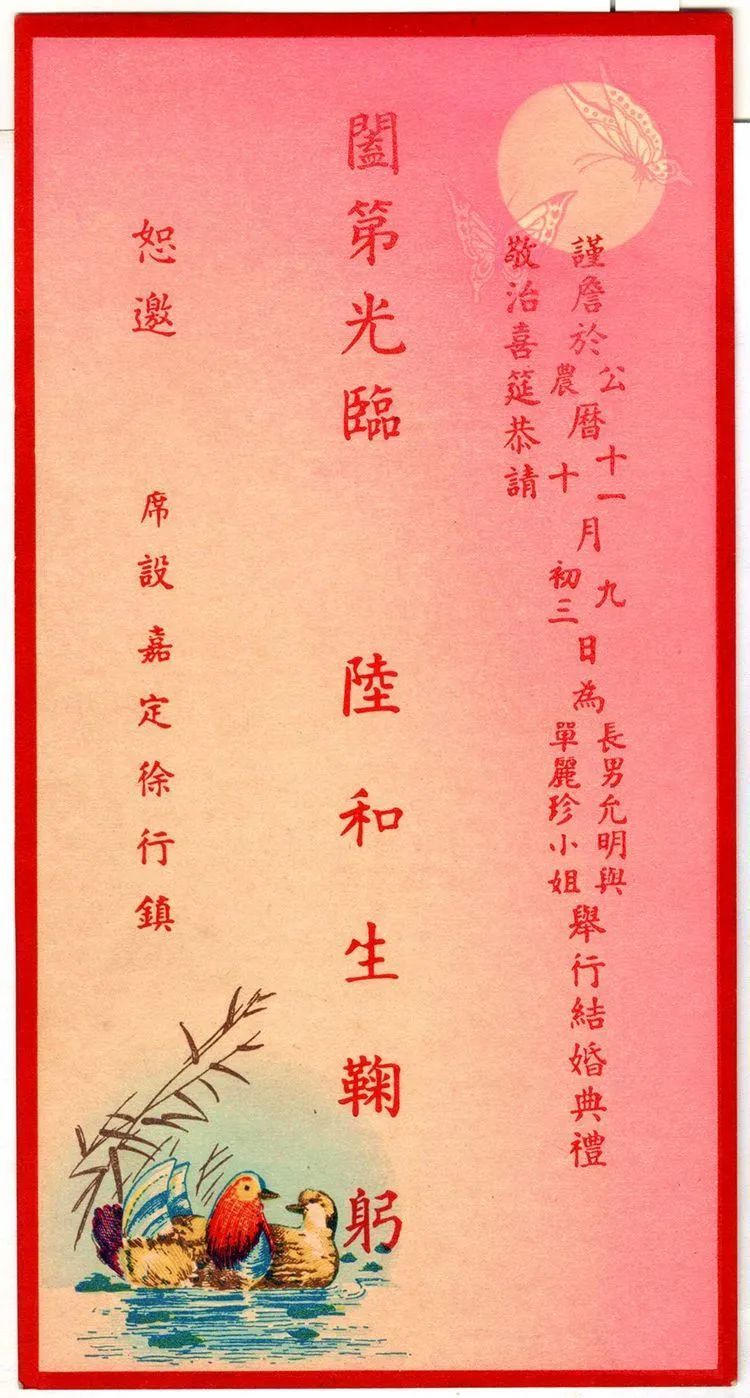 謹詹於公農曆十一十月九初三日為長男允明與單麗珍小姐舉行結婚典禮
敬治喜筵恭請
闔第光臨 陸和生鞠躬
恕邀 席設嘉定徐行鎮